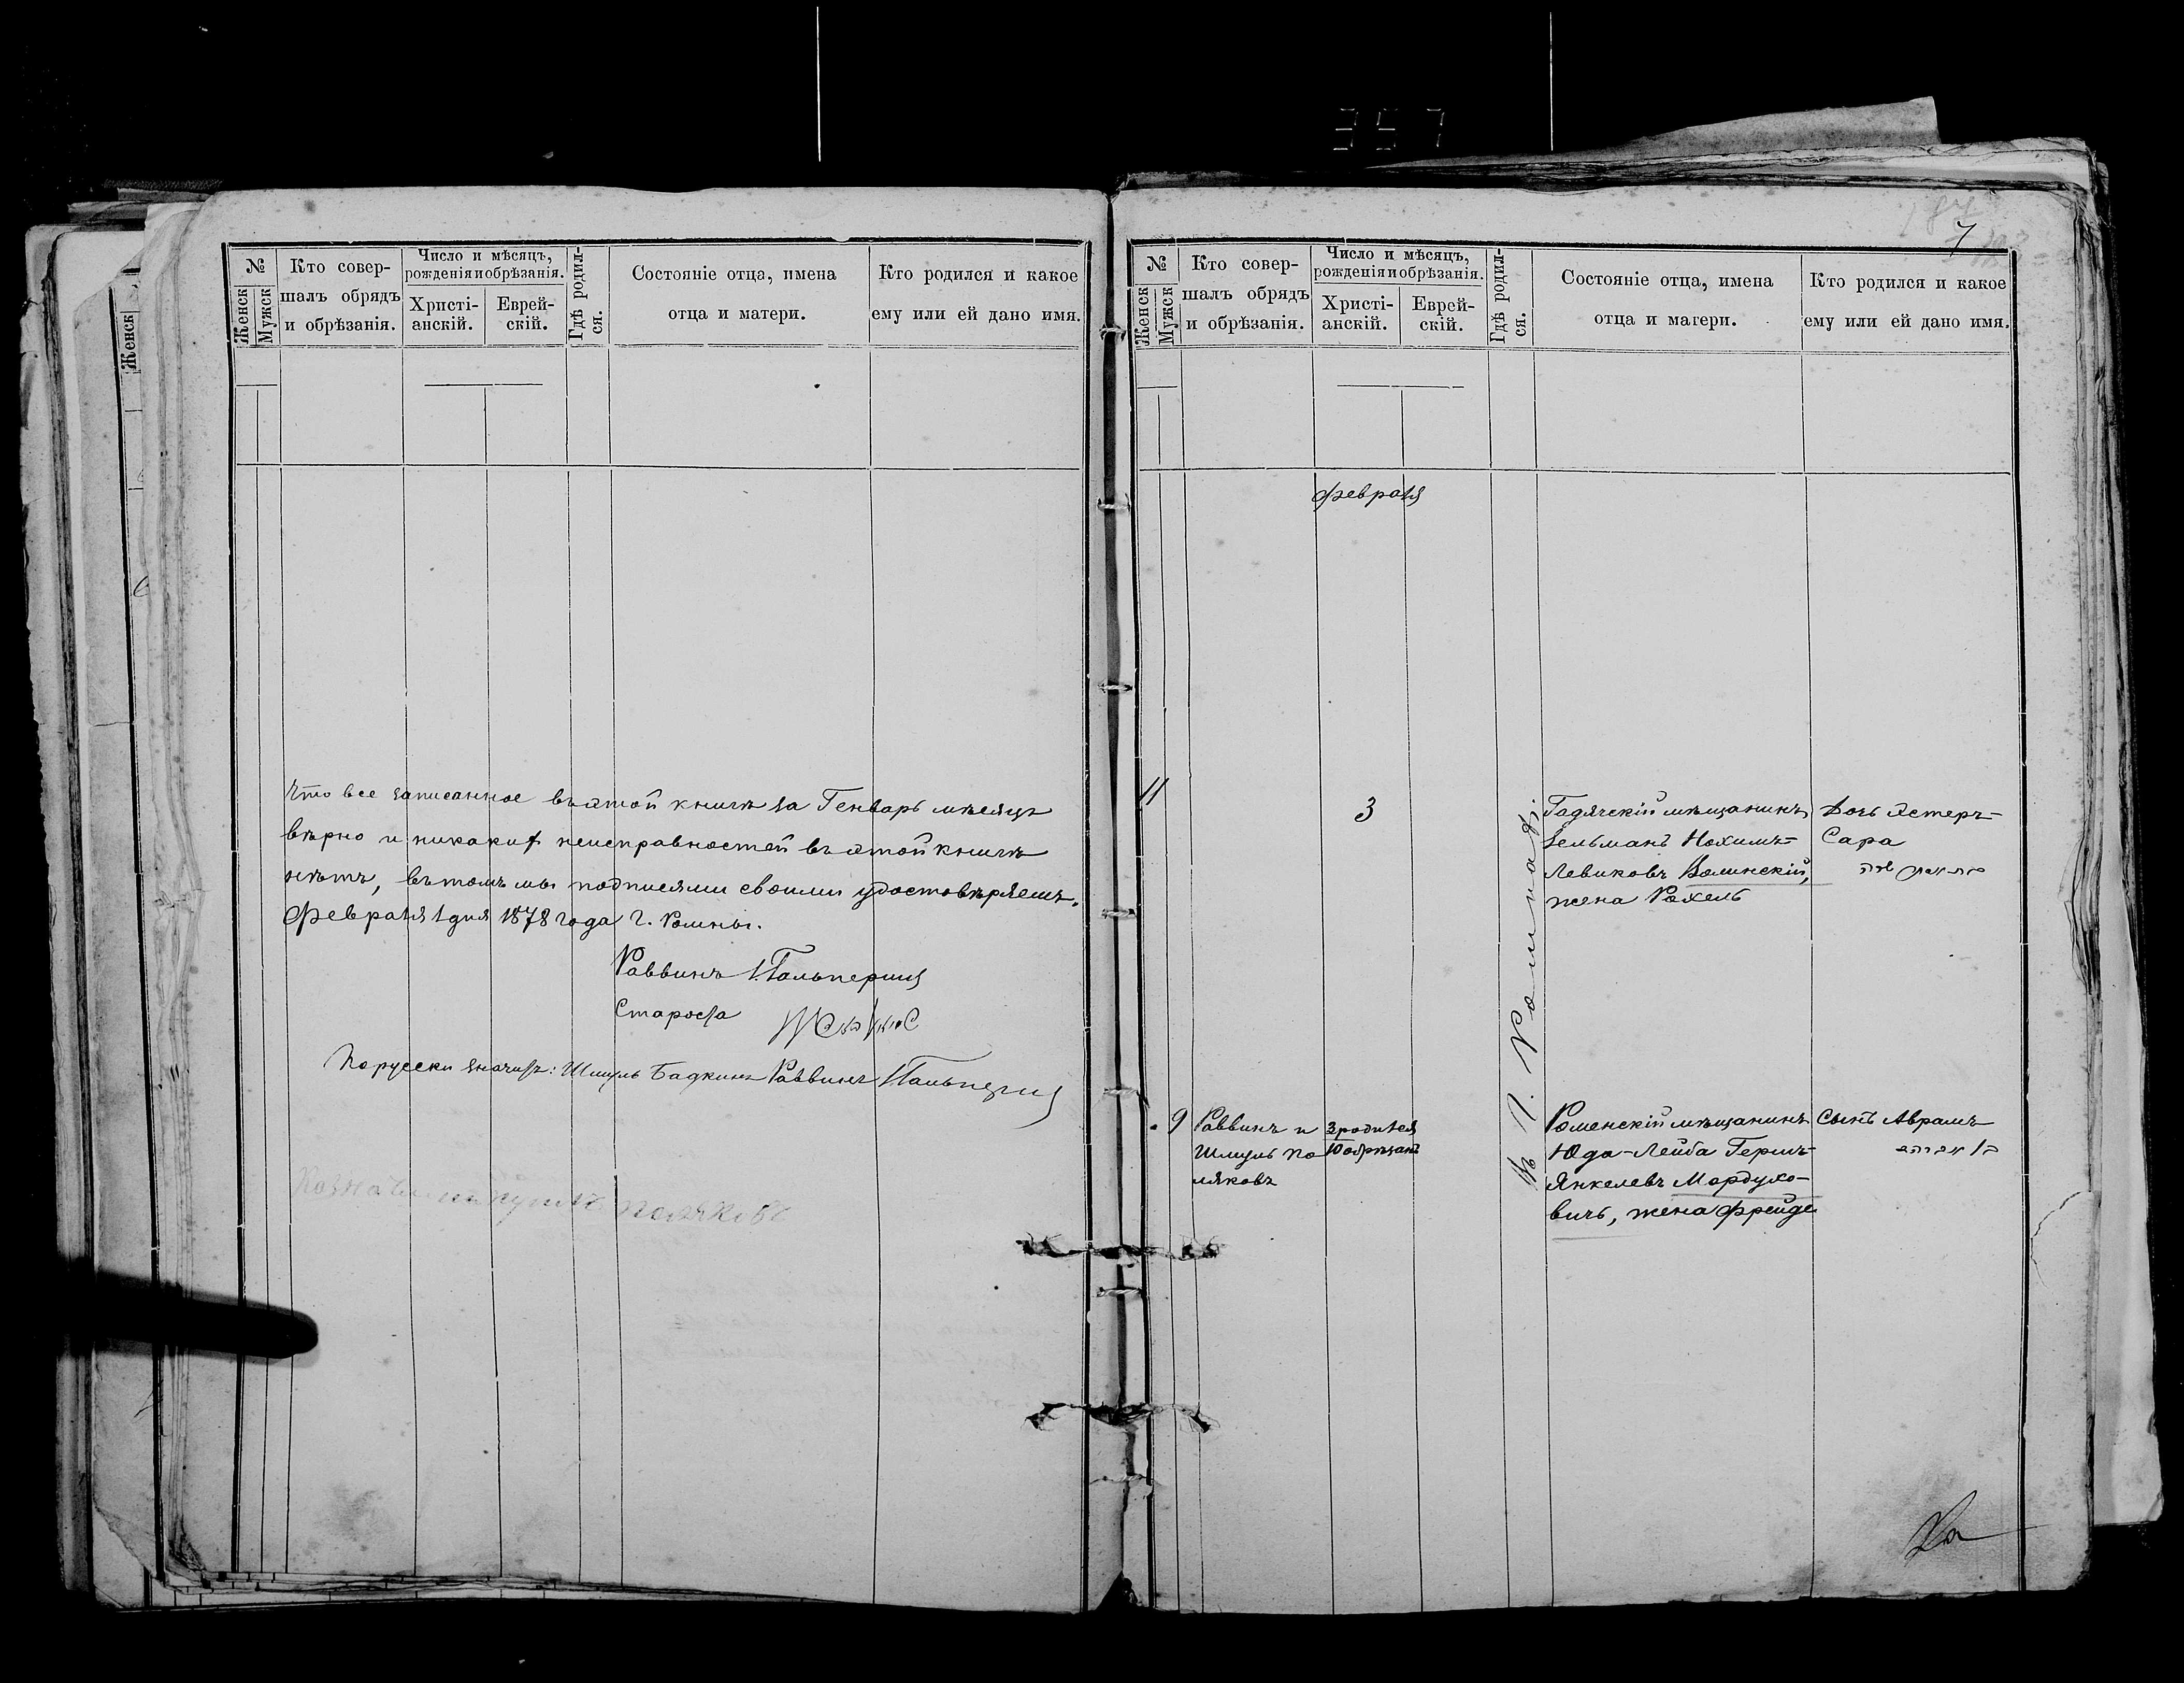 357
№
Женск
Мужск
Кто совер-
шалъ обрядъ
и обрѣзанія.
Число и мѣсяцъ,
рожденія и обрѣзанія.
Христі-
анскій.
Еврей-
скій.
Гдѣ родил-
ся.
Состояніе отца, имена
отца и матери.
Кто родился и какое
ему или ей дано имя.
Что все записанное въ этой книгѣ за Генварь мѣсяцъ
вѣрно и никакихъ неисправностей въ этой книгѣ
нѣтъ, въ томъ мы подписями своими удостовѣряемъ.
Февраля 1 дня 1878 года г. Ромны.
Раввинъ Гальперинъ
Староста
По русски значитъ: Шмуль Бадкинъ Раввинъ Гальперинъ
Женск
7
№
Женск
Мужск
Кто совер-
шалъ обрядъ
и обрѣзанія.
Число и мѣсяцъ,
рожденія и обрѣзанія.
Христі-
анскій.
Еврей-
скій.
Гдѣ родил-
ся.
Состояніе отца, имена
отца и матери.
Кто родился и какое
ему или ей дано имя.
Февраля
11
3
Гадячскій мѣщанинъ
Зельманъ Нохимъ-
Левиковъ Волинскій,
жена Рохель
Дочь Эстеръ-
Сара
שרה
Въ г. Ромнахъ.
9
Раввинъ и
Шмуль По
ляковъ
3 родился
10 обрѣзанъ
Роменскій мѣщанинъ
Юда-Лейба Гершъ-
Янкелевъ Мордухо-
вичъ, жена Фрейда
Сынъ Абрамъ
Ра